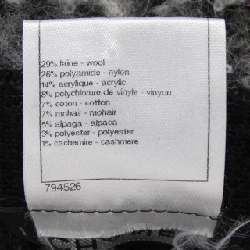 29% laine - wool
26% polyamide - nylon
14% acrylique - acrylic
8% polychlorure de vinyle - vinyon
7% coton - cotton
7% mohair - mohair
5% alpaga - alpaca
3% polyester - polyester
1% cachemire - cashmere
794526